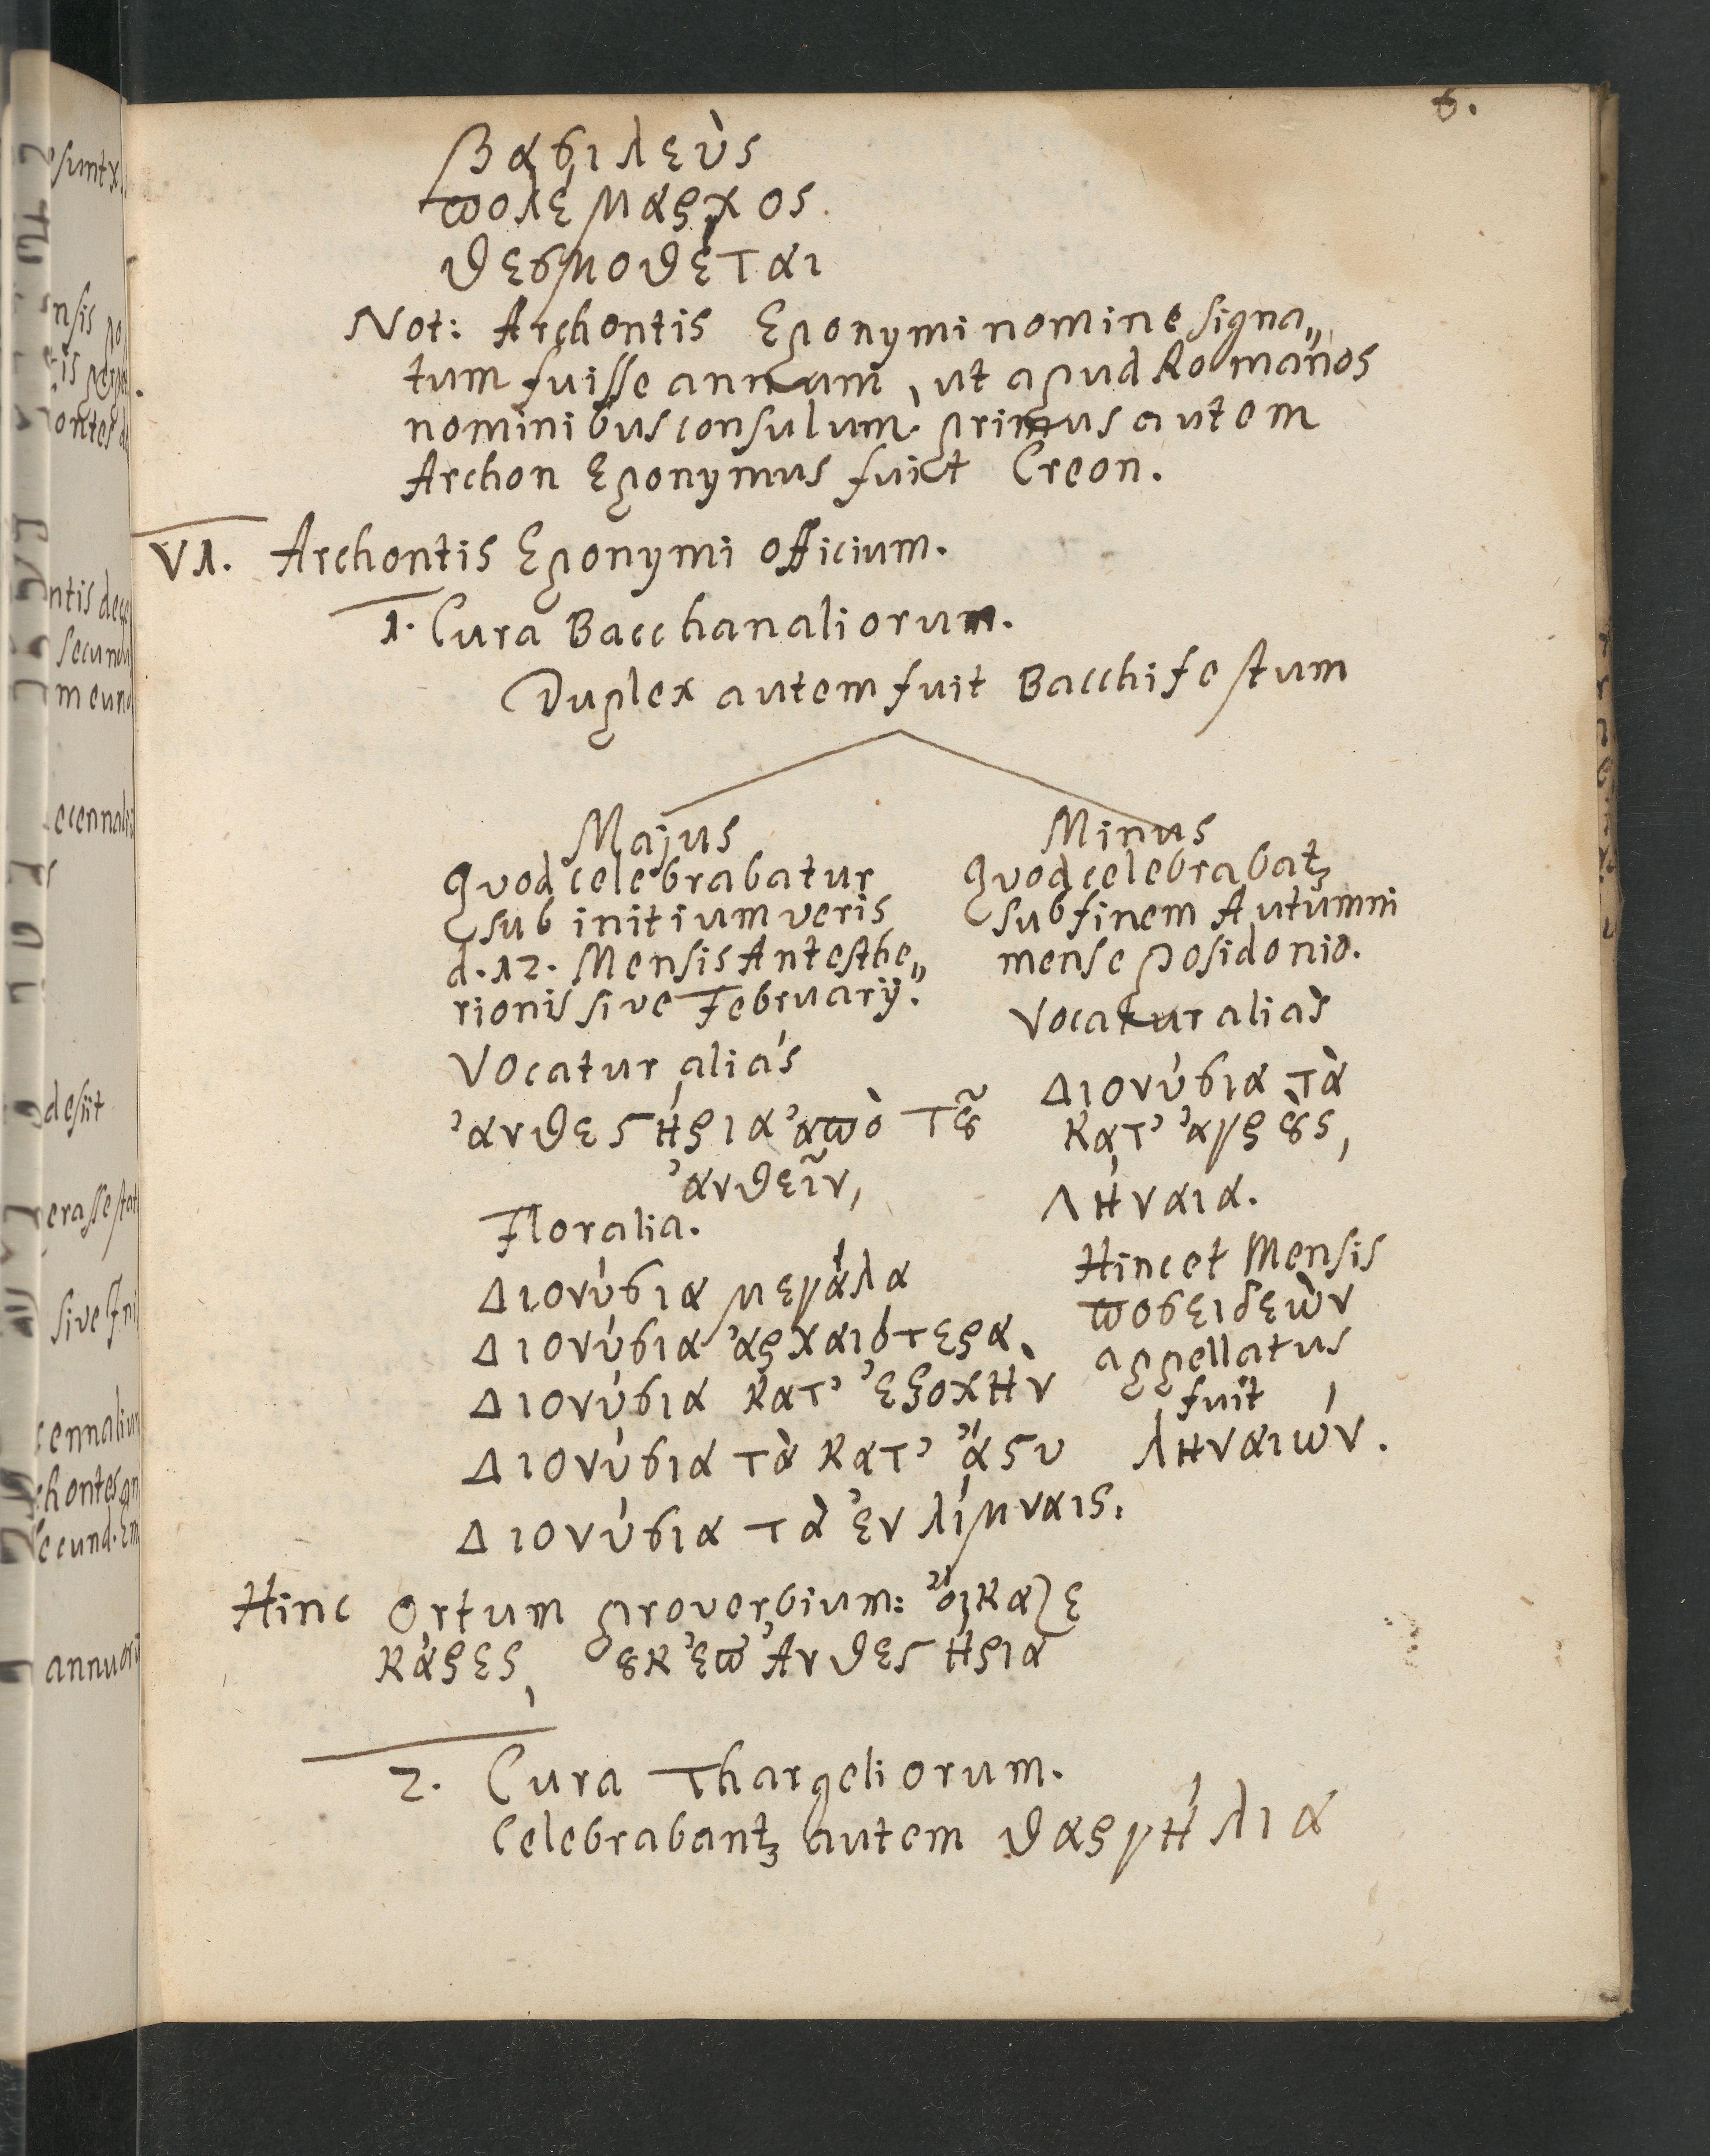 6.
βασιλεὺς
πολέμαρχος
θεσμοθέται
Not: Archontis Eponymi nomine signa„
tum fuisse annum, ut apud Romanos
nominibus consulum. primus autem
Archon Eponymus fuit Creon.
VI. Archontis Eponymi officium.
1. Cura Bacchanaliorum.
Duplex autem fuit Bacchi festum
Majus
qvod celebrabatur
sub initium veris
d. 12. Mensis Antesthe„
rionis sive Februarij.
Vocatur aliás
ἀνθεστήρια ἀπὸ τȣ͂
ἀνθεῖν,
Floralia.
Διονύσια μεγάλα
Διονύσια ἀρχαιότερα.
Διονύσια κατ' ἐξοχὴν
Διονύσια τὰ κατ' ἄςυ
Διονύσια τὰ ἐν λίμναις.
Minus
qvod celebrabatꝫ
sub finem Autumni
mense posidonio.
Vocatur aliàs
Διονύσια τὰ
κατ' ἀγρȣ̀ς,
Λήναια.
Hinc et Mensis
ποσειδεὼν
appellatus
fuit
ληναιών.
Hinc ortum proverbium: ὄικαζε
κάρες, ȣκ ἐπ' Ἀνθεςήρια
2. Cura Thargeliorum.
Celebrabantꝫ autem θαργήλια
sunt
nsis
ontes
ntis
secund
m eund
ecennali
desiit
erasse
sive
cennalium
chontes
secund.
annuor